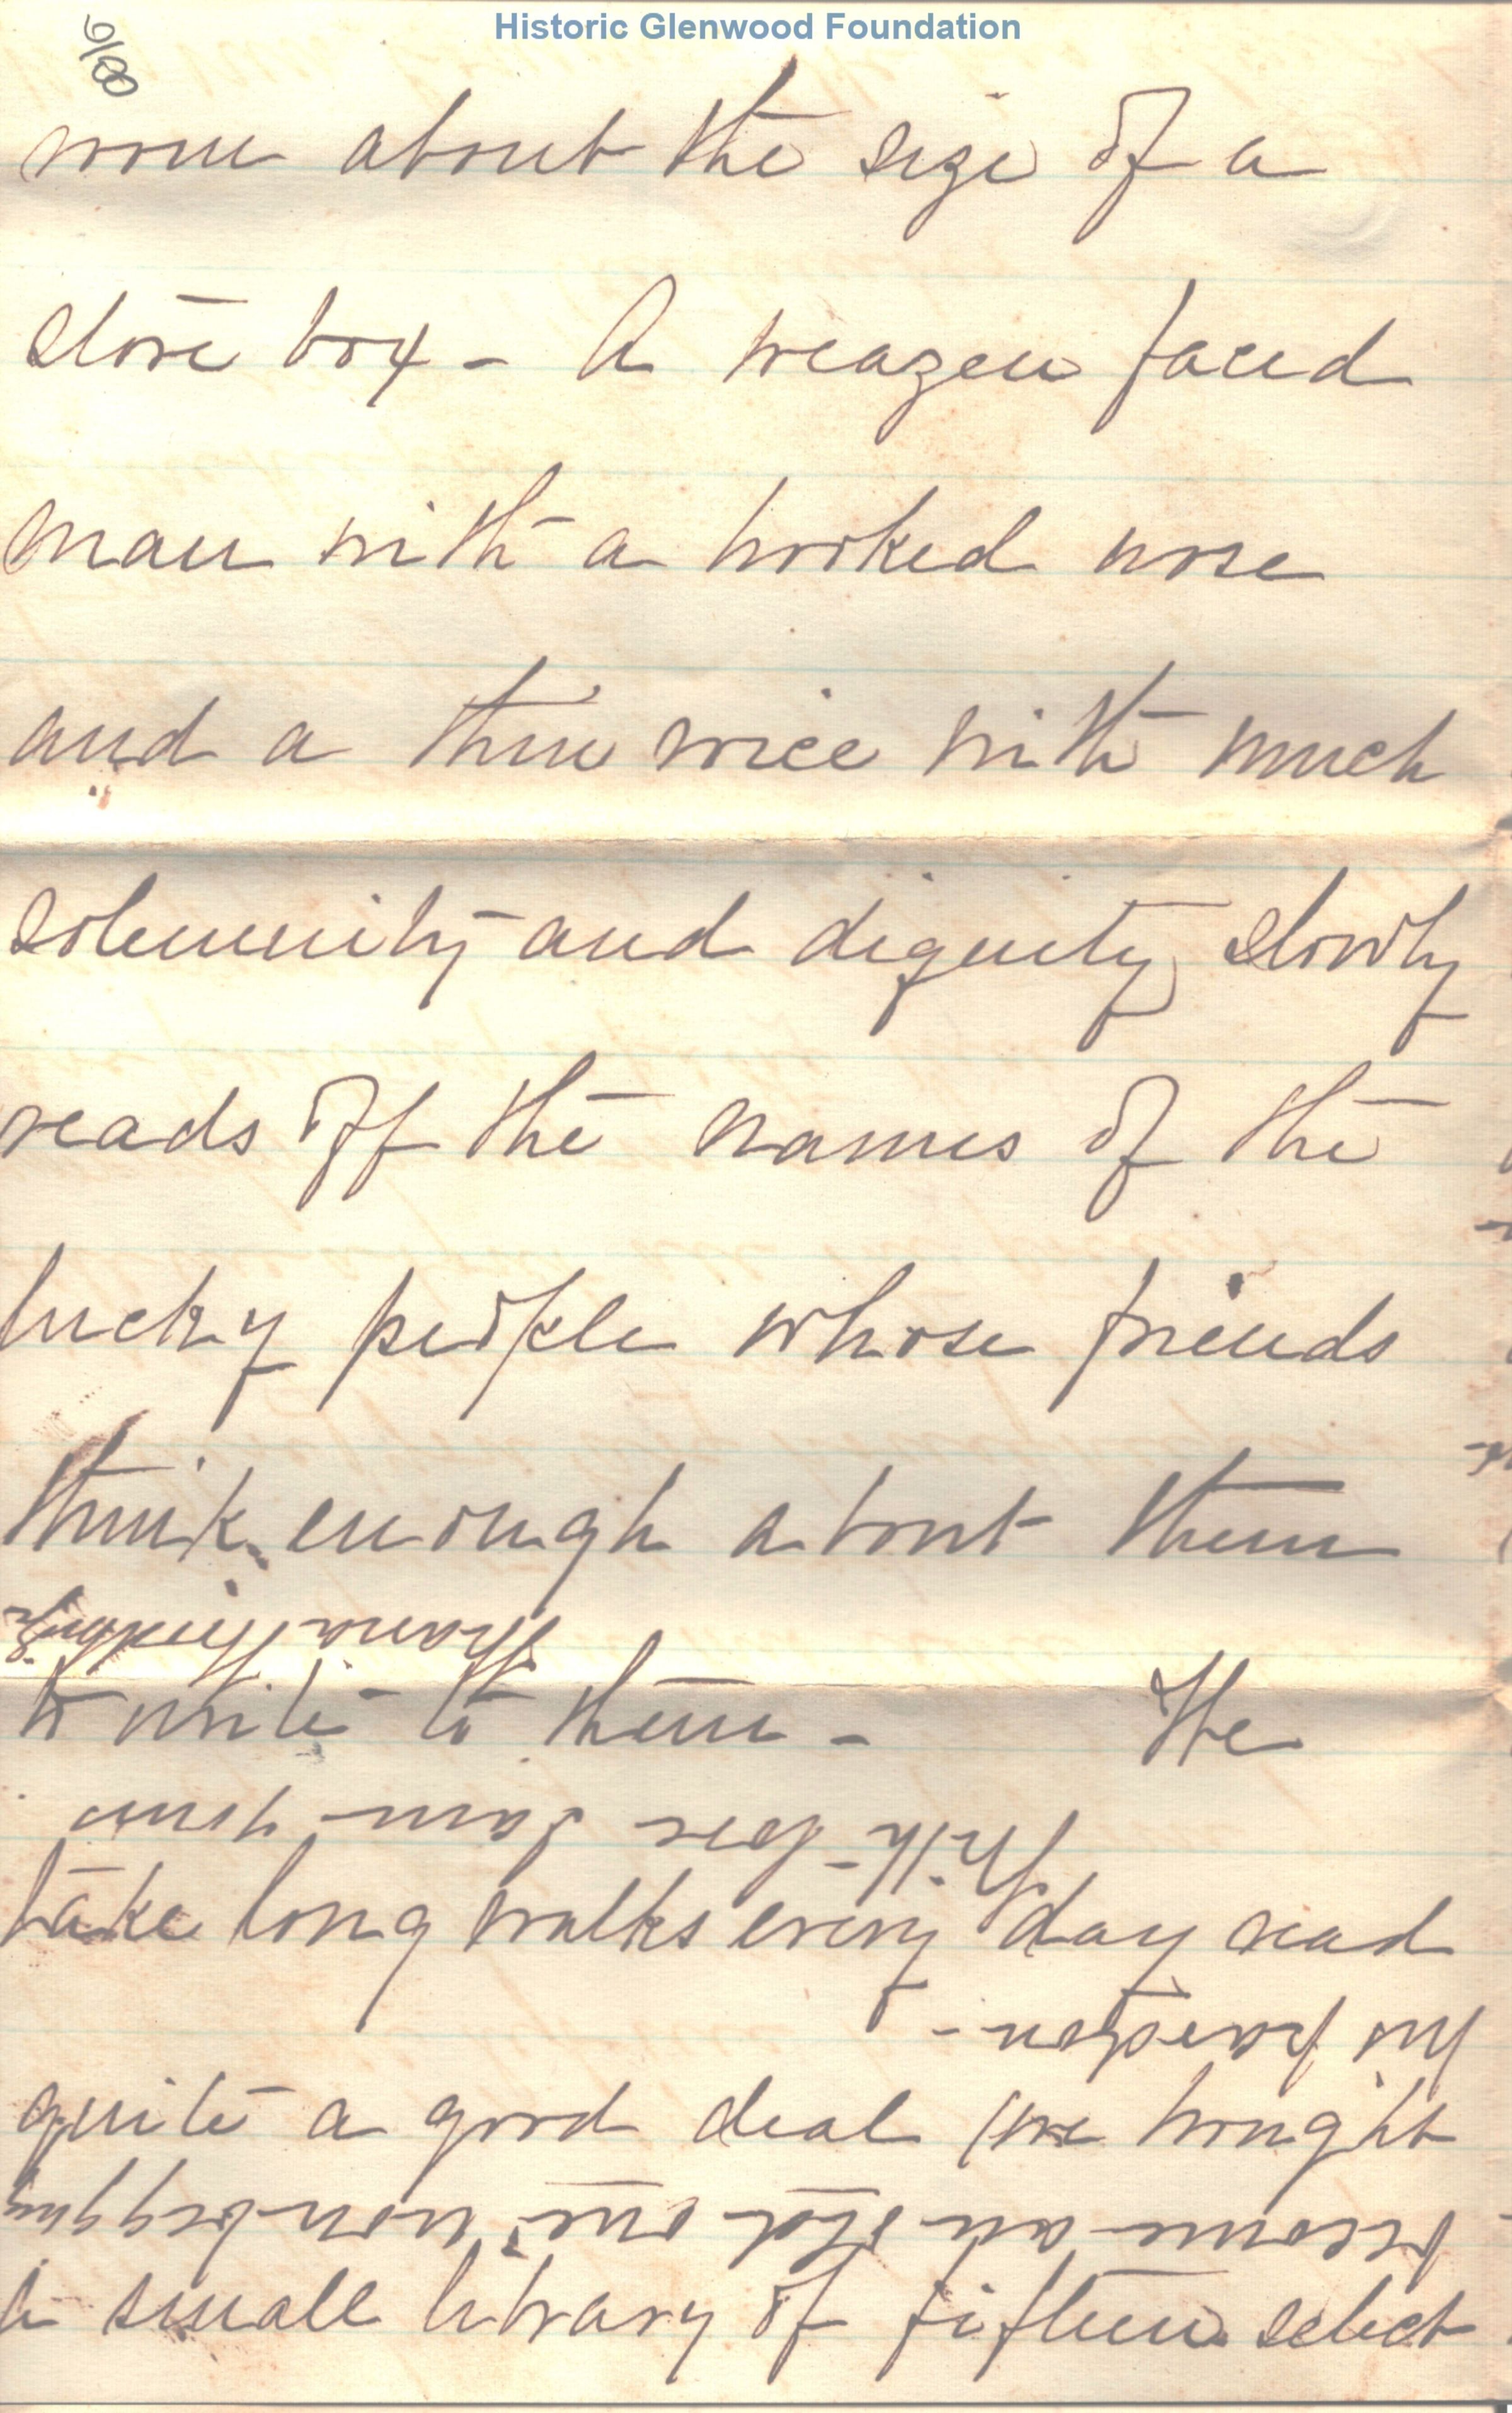 Historic Glenwood Foundation
room about the size of a
store box - A weazen faced
man with a hooked nose
and a thin voice with much
solemnity and dignity slowly
reads off the names of the
lucky people whose friends
think enough about them
to write to them - We
take long walks every day read
quite a good deal (we bought
a small library of fifteen select
become an old one, now begging
his pardon -
With love I am your